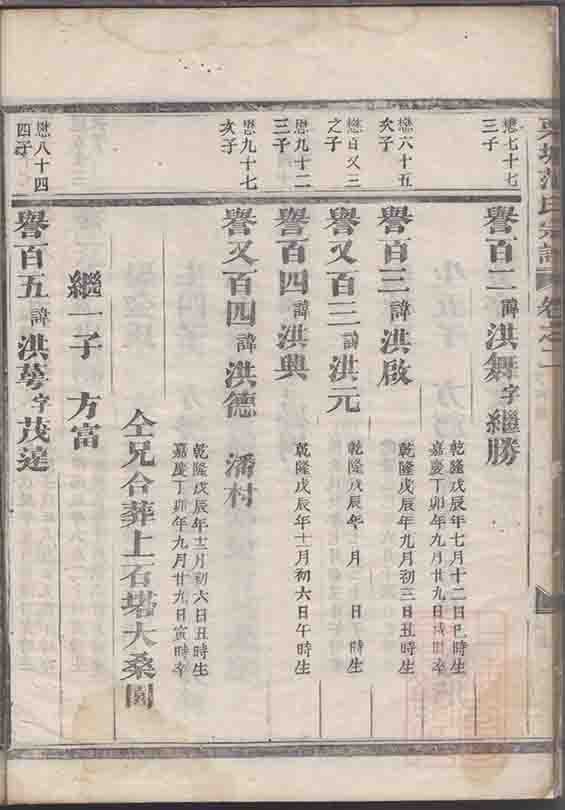 范氏宗譜 卷之二
懋七十七
三子
譽百二 諱洪舞字繼勝
乾隆戊辰年七月十二日巳時生
嘉慶丁卯年九月廿九日戌時卒
懋六十五
次子
譽百三 諱洪啟
乾隆戊辰年九月初三日丑時生
懋百又三
之子
譽又百三 諱洪元
乾隆戊辰年 月 日 時生
懋九十二
三子
譽百四 諱洪興
乾隆戊辰年十月初六日午時生
懋九十七
次子
譽又百四 諱洪德 潘村
乾隆戊辰年十二月初六日丑時生
嘉慶丁卯年九月廿九日寅時卒
仝兄合葬上石塔大桑園
繼一子 方富
懋八十四
四子
譽百五 諱洪萼字茂達